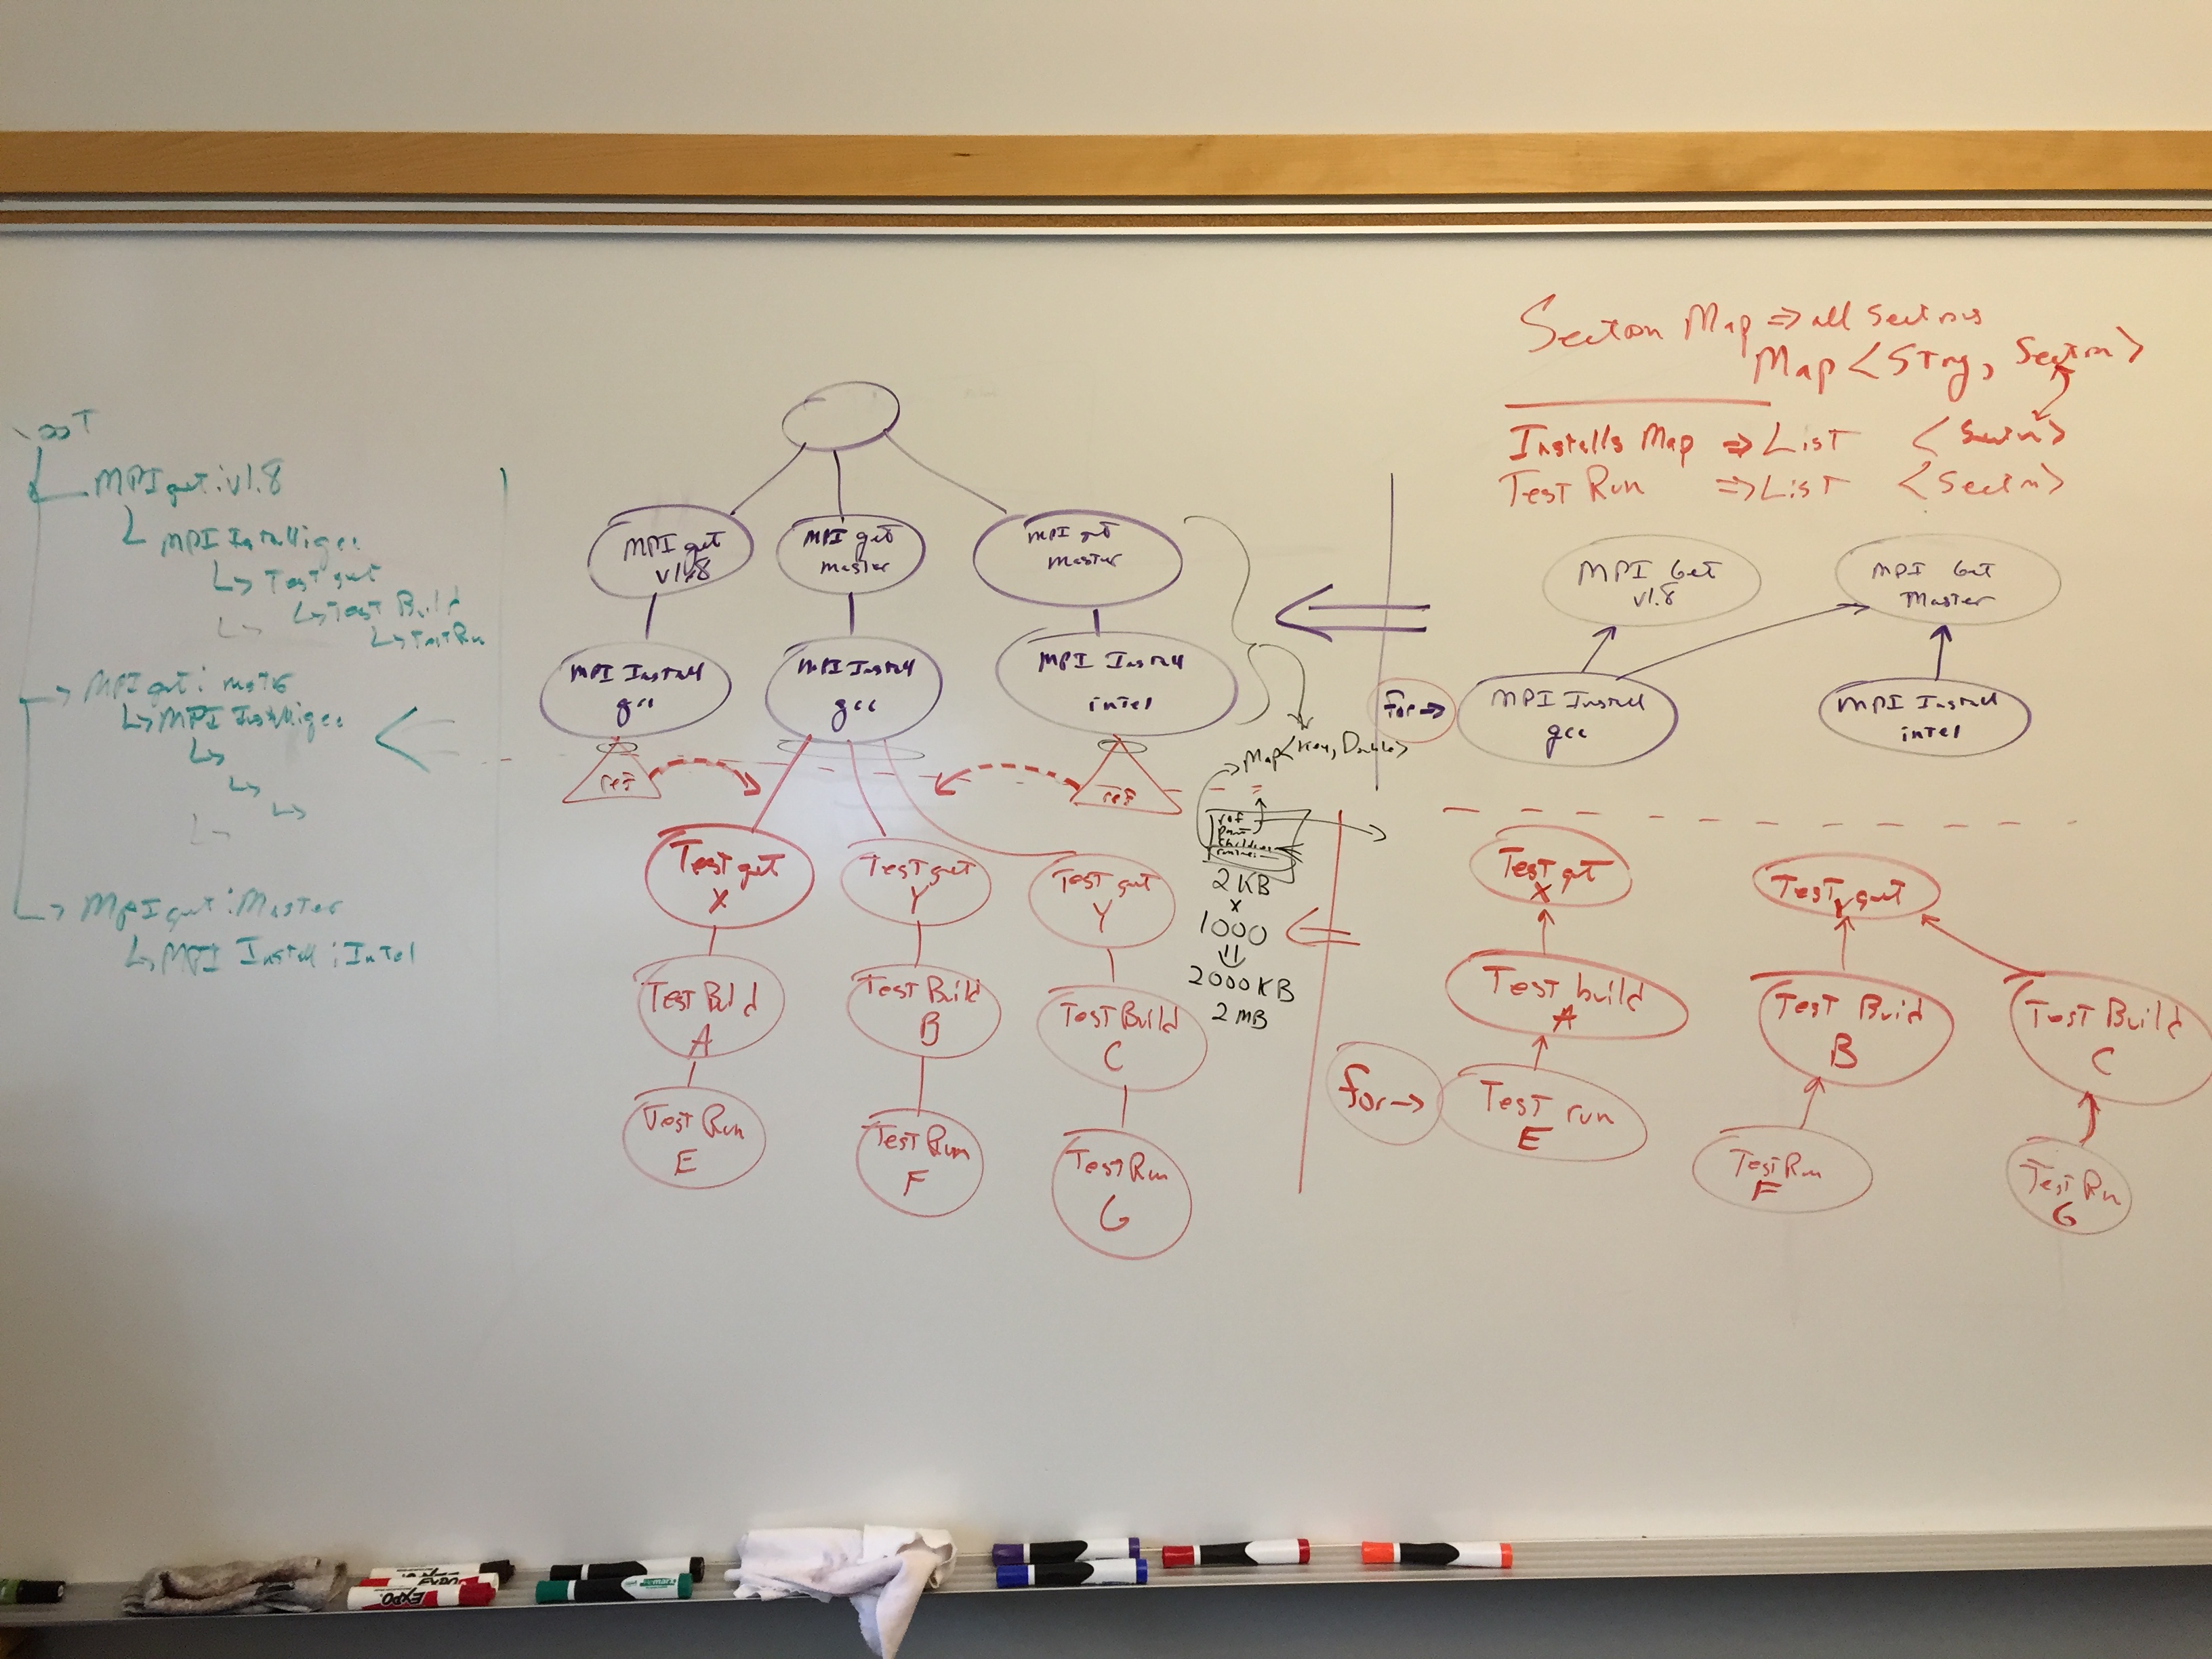 root
MPI get: v1.8
MPI Install: gcc
Test get
Test Build
Test Run
MPI get: master
MPI Install: gcc
MPI get: Master
MPI Install: Intel
MPI get
v1.8
MPI get
master
MPI get
master
MPI Install
gcc
MPI Install
gcc
MPI Install
intel
ref
ref
Test get
X
Test get
Y
Test get
Y
Test Build
A
Test Build
B
Test Build
C
Test Run
E
Test Run
F
Test Run
G
Map<Key, Double>
ref
Parent
Children
2 KB
x
1000
=
2000 KB
2 MB
Section Map => all Sections
Map <String, Section>
Installs Map => List <Section>
Test Run => List <Section>
MPI Get
v1.8
MPI Get
Master
for →
MPI Install
gcc
MPI Install
intel
Test get
X
Test get
Y
Test build
A
Test Build
B
Test Build
C
for →
Test run
E
Test Run
F
Test Run
G
EXPO
EXPO